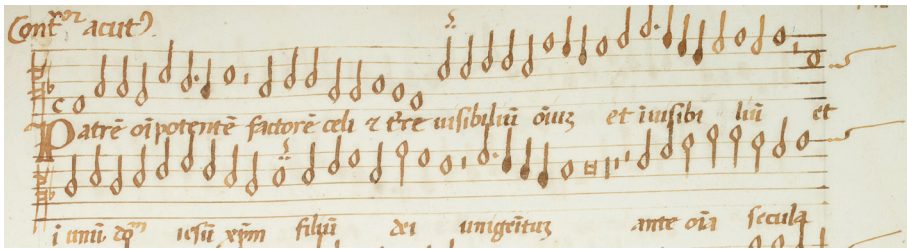 Cont^ra^or acut9.
Patrē oīpotentē factorē celi ⁊ t͛re uisibiliū oīuꝫ et īuisibi liū et
ī unū dm̄ iesū xp̄m filiū dei unigeītuꝫ ante oīa secula